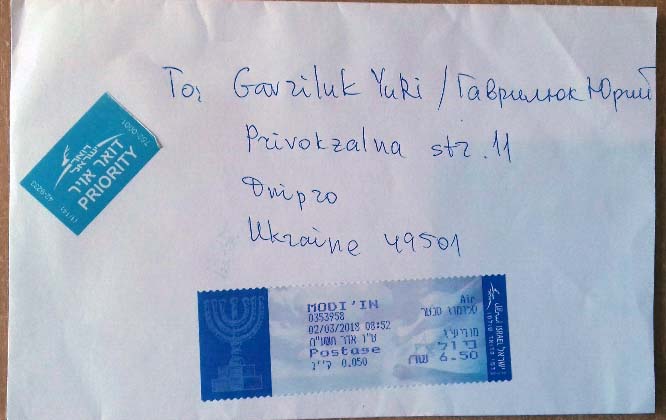 To: Gavriluk Yuri / Гаврилюк Юрий
Privokzalna str. 11
Dnipro
Ukraine 49501
TS2-0001
דואר
ישראל
דואר אויר
PRIORITY
MODI'IN
0353958
02/03/2018 08:52
ט"ו אדר תשע"ח
Postage
0.050 ק"ג
Air
מודיעין
בול
6.50 שח
ישראל ISRAEL